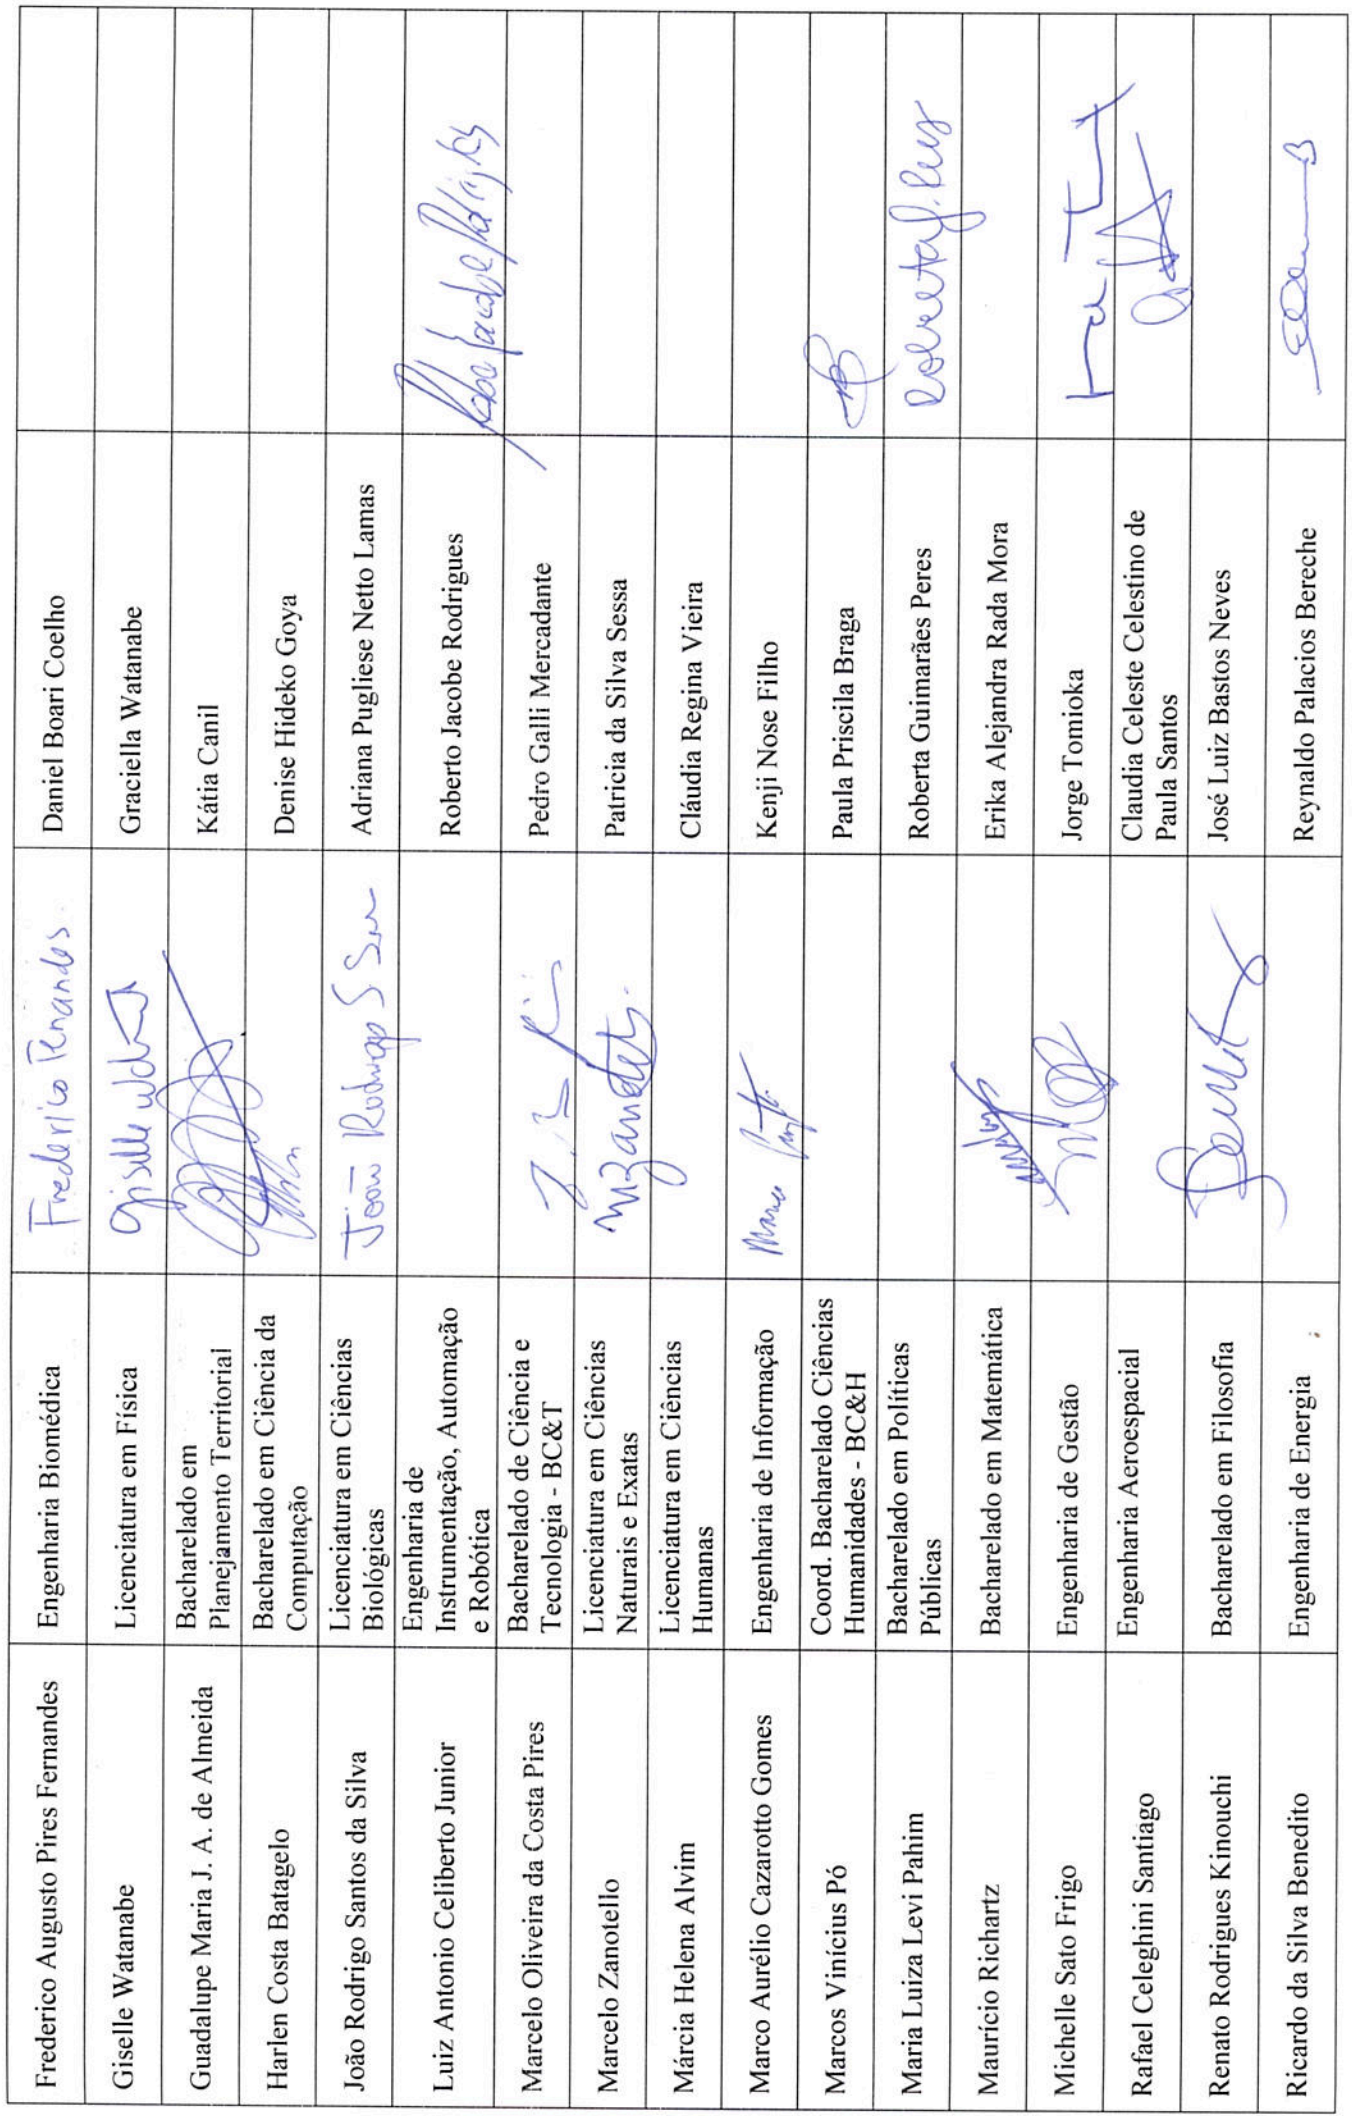 Frederico Augusto Pires Fernandes
Engenharia Biomédica
Frederico Fernandes
Daniel Boari Coelho
Giselle Watanabe
Licenciatura em Física
Giselle
Graciella Watanabe
Guadalupe Maria J. A. de Almeida
Bacharelado em
Planejamento Territorial
Kátia Canil
Harlen Costa Batagelo
Bacharelado em Ciência da
Computação
Denise Hideko Goya
João Rodrigo Santos da Silva
Licenciatura em Ciências
Biológicas
João Rodrigo S
Adriana Pugliese Netto Lamas
Luiz Antonio Celiberto Junior
Engenharia de
Instrumentação, Automação
e Robótica
Roberto Jacobe Rodrigues
Marcelo Oliveira da Costa Pires
Bacharelado de Ciência e
Tecnologia - BC&T
Pedro Galli Mercadante
Marcelo Zanotello
Licenciatura em Ciências
Naturais e Exatas
Patricia da Silva Sessa
Márcia Helena Alvim
Licenciatura em Ciências
Humanas
Cláudia Regina Vieira
Marco Aurélio Cazarotto Gomes
Engenharia de Informação
Marco
Kenji Nose Filho
Marcos Vinícius Pó
Coord. Bacharelado Ciências
Humanidades - BC&H
Paula Priscila Braga
Maria Luiza Levi Pahim
Bacharelado em Políticas
Públicas
Roberta Guimarães Peres
Maurício Richartz
Bacharelado em Matemática
Erika Alejandra Rada Mora
Michelle Sato Frigo
Engenharia de Gestão
Jorge Tomioka
Rafael Celeghini Santiago
Engenharia Aeroespacial
Claudia Celeste Celestino de
Paula Santos
Renato Rodrigues Kinouchi
Bacharelado em Filosofia
José Luiz Bastos Neves
Ricardo da Silva Benedito
Engenharia de Energia
Reynaldo Palacios Bereche